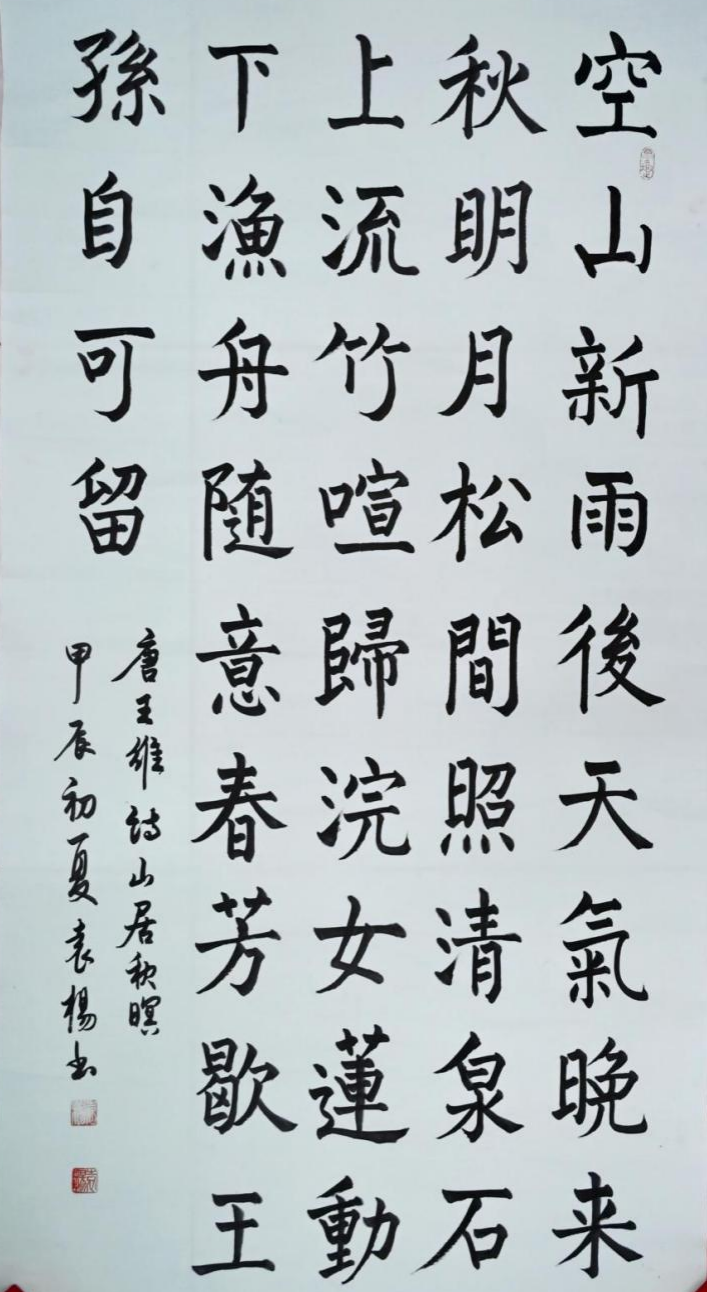 空山新雨後天氣晚来
秋明月松間照清泉石
上流竹喧歸浣女蓮動
下漁舟随意春芳歇王
孫自可留
唐王維詩山居秋暝
甲辰初夏袁楊书